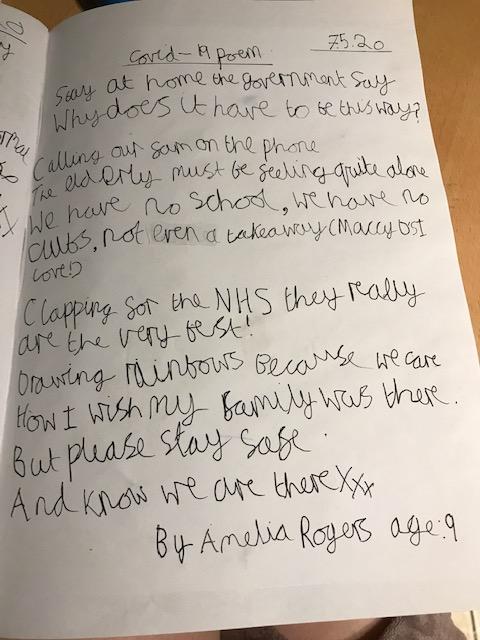 Covid-19 poem 7.5.20
Stay at home the government say
Why does it have to be this way?
Calling our fam on the phone
The elderly must be feeling quite alone
We have no school, we have no
clubs, not even a takeaway (Maccy Ds I
love!)
Clapping for the NHS they really
are the very best!
Drawing rainbows because we care
How I wish my family was there.
But please stay safe.
And know we are there xxx
By Amelia Rogers age:9